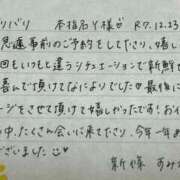 リバリ 本指名Y様が R7.12.23
急遽事前のご予約をしてくださり、嬉し
回もいつもと違うシチュエーションで新鮮で
喜んで頂けてなによりでしたが最後に
ージをさせて頂けて嬉しかったです!お
中、たくさん会いに来て下さり、今年一年
ございました
新條 あみ